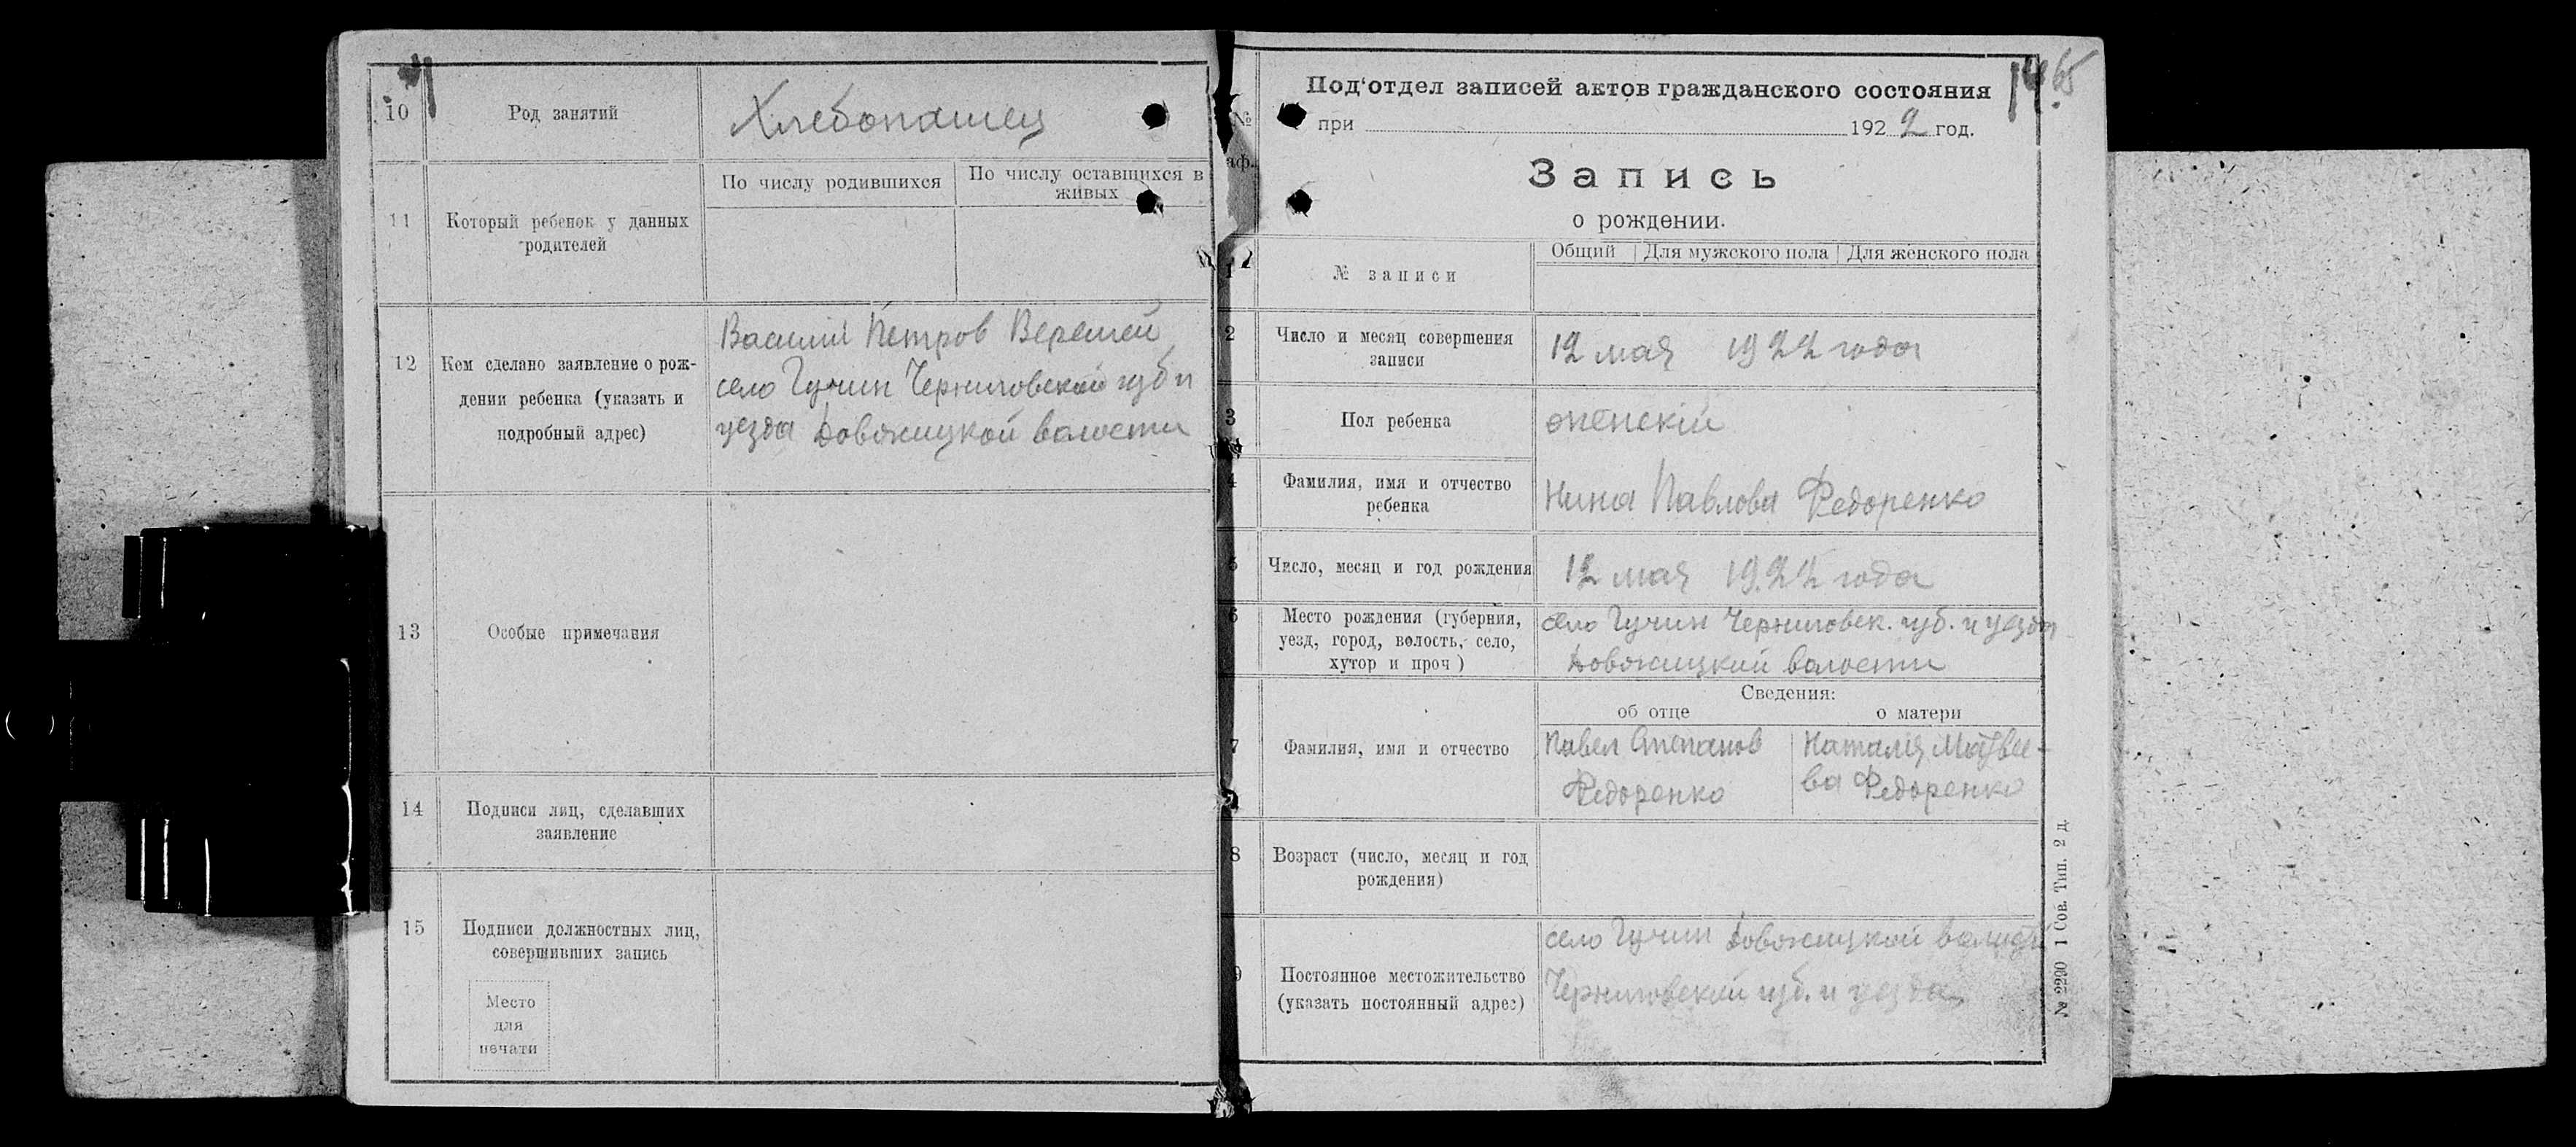 10
Род занятий
Хлебопашец
11
Который ребенок у данных
родителей
По числу родившихся
По числу оставшихся в
живых
12
Кем сделано заявление о рож-
дении ребенка (указать и
подробный адрес)
Василий Петров Веремей
село Гучин Черниговской губ и
уезда Довжицкой волости
13
Особые примечания
14
Подписи лиц, сделавших
заявление
15
Подписи должностных лиц,
совершивших запись
Место
для
печати
Под'отдел записей актов гражданского состояния
№
при 1922 год.
Запись
о рождении.
1
№ записи
Общий
Для мужского пола
Для женского пола
2
Число и месяц совершения
записи
12 мая 1922 года
3
Пол ребенка
женскій
4
Фамилия, имя и отчество
ребенка
Нина Павлова Федоренко
5
Число, месяц и год рождения
12 мая 1922 года
6
Место рождения (губерния,
уезд, город, волость, село,
хутор и проч)
село Гучин Черниговск. губ. и уезда
Довжицкий волости
Сведения:
об отце
о матери
7
Фамилия, имя и отчество
Павел Степанов
Федоренко
Наталия Матвее-
ва Федоренко
8
Возраст (число, месяц и год
рождения)
9
Постоянное местожительство
(указать постоянный адрес)
село Гучин Довжицкой
Черниговской губ. и уезда
№ 2290 1 Сов. Тип. 2 д.